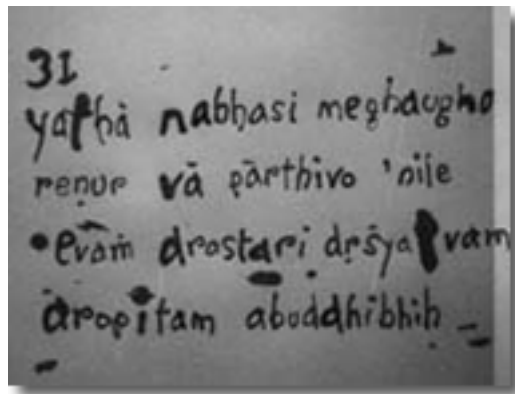 31
yathā nabhasi meghaugho
reṇur vā pārthivo 'nile
evaṁ draṣṭari dṛśyatvam
āropitam abuddhibhiḥ